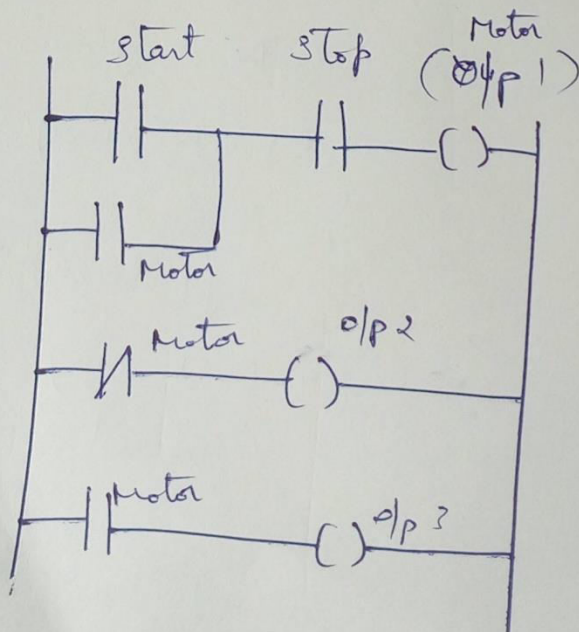 Start
Stop
Motor
(O/p 1)
Motor
Motor
o/p 2
Motor
o/p 3